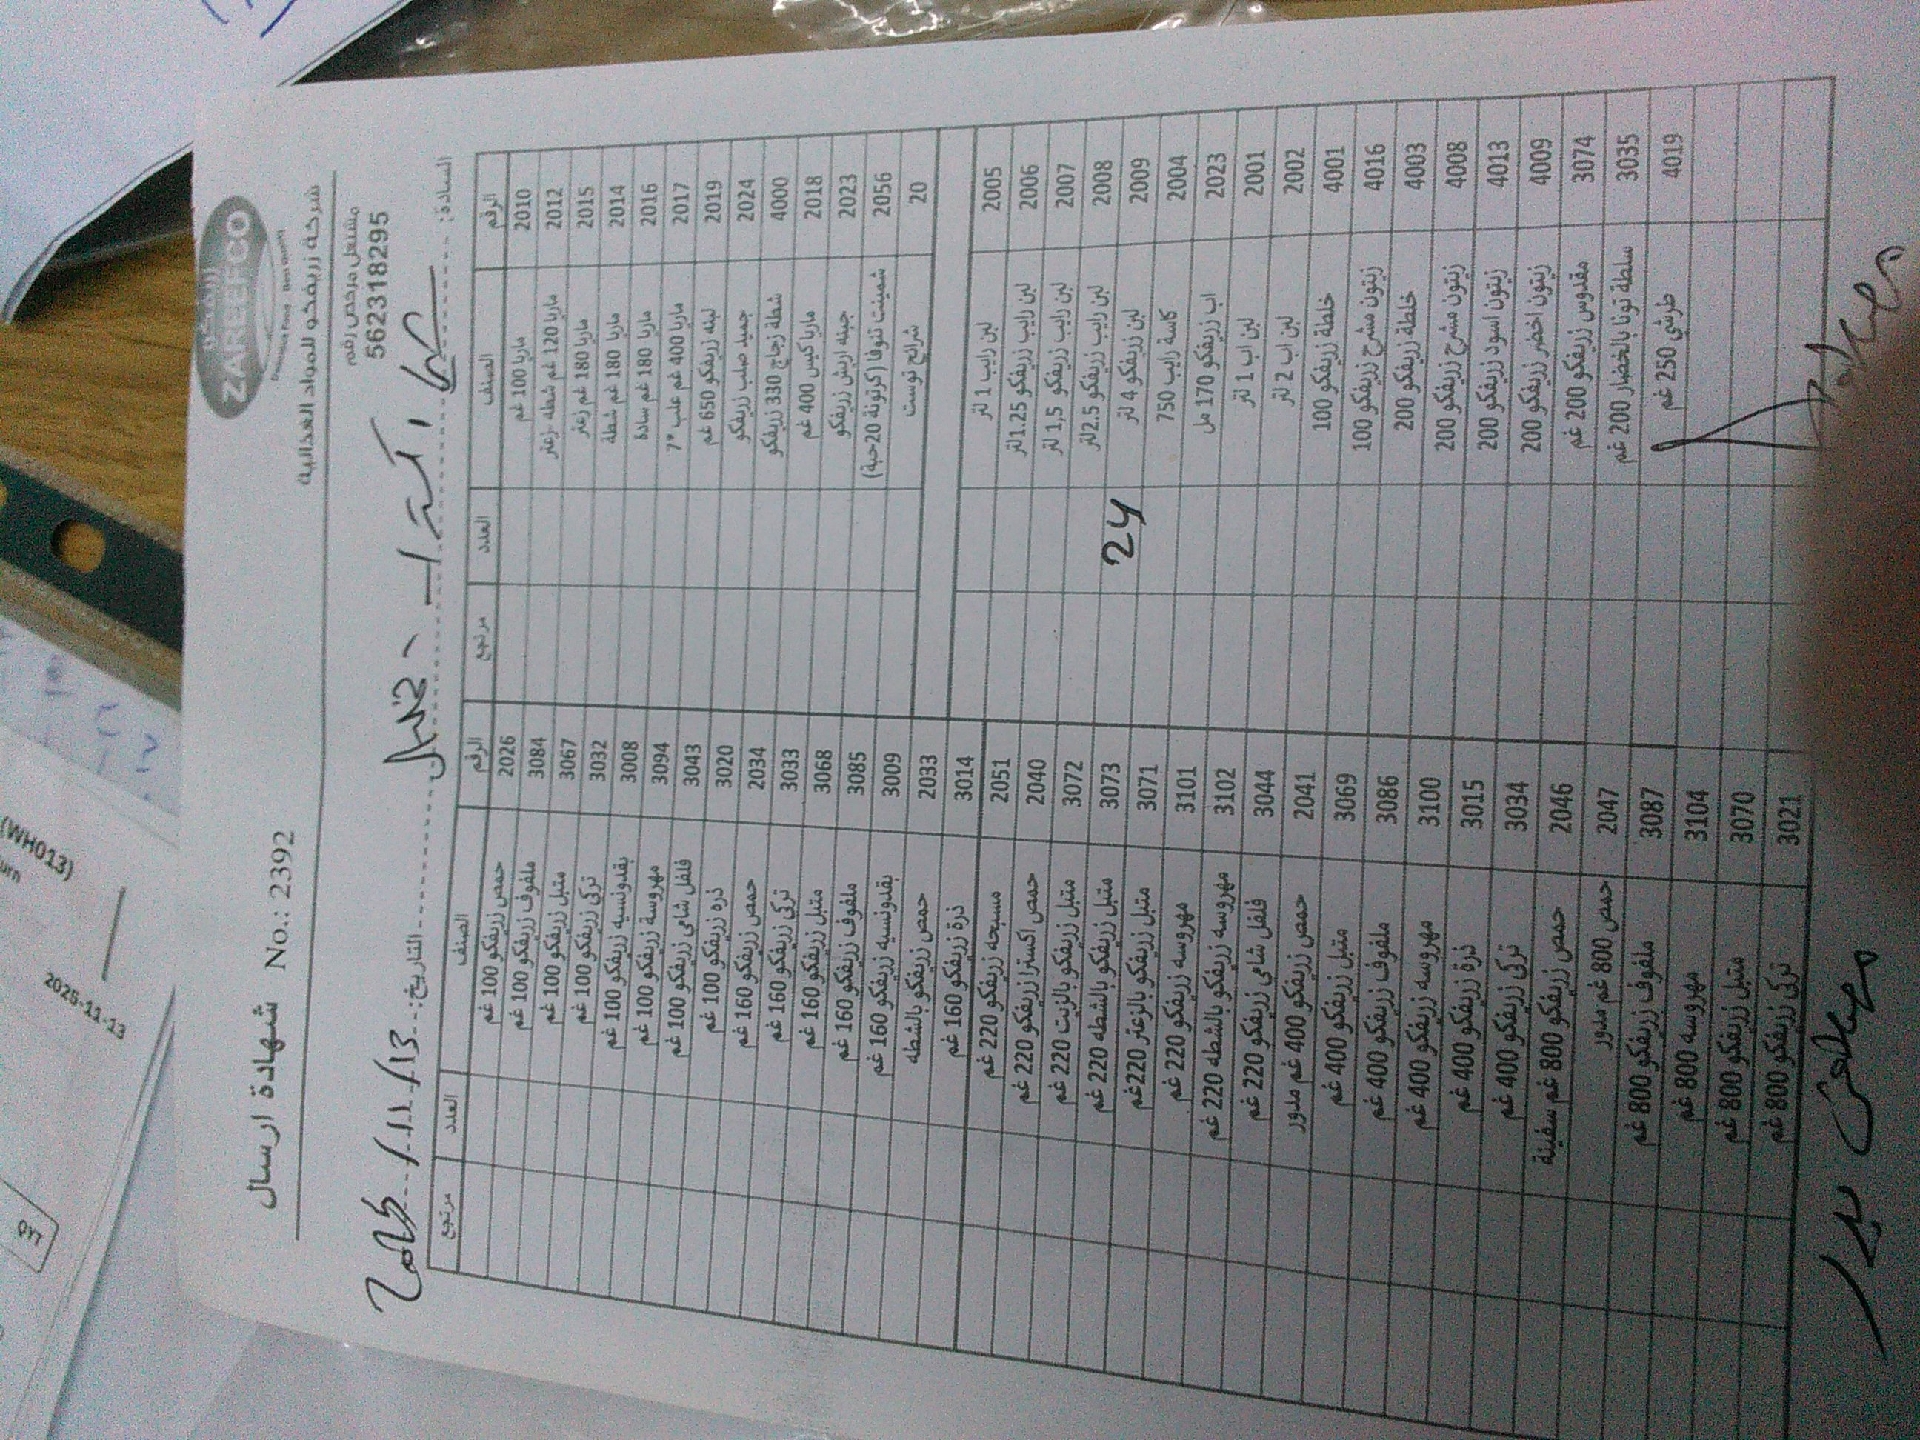 زريفكو
ZAREEFCO
شركة زريفكو للمواد الغذائية
شهادة ارسال No.: 2392
مشتغل مرخص رقم
562318295
السادة:
التاريخ: 13/11/
الرقم الصنف العدد مرتجع الرقم الصنف العدد مرتجع
2010 ماريا 100 غم 2026 حمص زريفكو 100 غم
2012 ماريا 120 غم شطة -زعتر 3084 ملفوف زريفكو 100 غم
2015 ماريا 180 غم زعتر 3067 متبل زريفكو 100 غم
2014 ماريا 180 غم شطة 3032 تركي زريفكو 100 غم
2016 ماريا 180 غم سادة 3008 بقدونسيه زريفكو 100 غم
2017 ماريا 400 غم علب *7 3094 مهروسة زريفكو 100 غم
2019 لبنه زريفكو 650 غم 3043 فلفل شامي زريفكو 100 غم
2024 جميد صلب زريفكو 3020 ذره زريفكو 100 غم
4000 شطة زجاج 330 زريفكو 2034 حمص زريفكو 160 غم
2018 ماريا كيس 400 غم 3033 تركي زريفكو 160 غم
2023 جبنه اريش زريفكو 3068 متبل زريفكو 160 غم
2056 شمينت توفا (كرتونة 20حبة) 3085 ملفوف زريفكو 160 غم
20 شرائح توست 3009 بقدونسيه زريفكو 160 غم
2033 حمص زريفكو بالشطه
3014 ذرة زريفكو 160 غم
2005 لبن رايب 1 لتر 2051 مسبحه زريفكو 220 غم
2006 لبن رايب زريفكو 1.25لتر 2040 حمص اكسترا زريفكو 220 غم
2007 لبن رايب زريفكو 1,5 لتر 3072 متبل زريفكو بالزيت 220 غم
2008 لبن رايب زريفكو 2.5لتر 3073 متبل زريفكو بالشطه 220 غم
2009 لبن زريفكو 4 لتر 24 3071 متبل زريفكو بالزعتر 220غم
2004 كاسة رايب 750 3101 مهروسه زريفكو 220 غم
2023 اب زريفكو 170 مل 3102 مهروسه زريفكو بالشطه 220 غم
2001 لبن اب 1 لتر 3044 فلفل شامي زريفكو 220 غم
2002 لبن اب 2 لتر 2041 حمص زريفكو 400 غم مدور
4001 خلطة زريفكو 100 3069 متبل زريفكو 400 غم
4016 زيتون مشرح زريفكو 100 3086 ملفوف زريفكو 400 غم
4003 خلطة زريفكو 200 3100 مهروسه زريفكو 400 غم
4008 زيتون مشرح زريفكو 200 3015 ذرة زريفكو 400 غم
4013 زيتون اسود زريفكو 200 3034 تركي زريفكو 400 غم
4009 زيتون اخضر زريفكو 200 2046 حمص زريفكو 800 غم سفينة
3074 مقدوس زريفكو 200 غم 2047 حمص 800 غم مدور
3035 سلطة تونا بالخضار 200 غم 3087 ملفوف زريفكو 800 غم
4019 طرشي 250 غم 3104 مهروسه 800 غم
3070 متبل زريفكو 800 غم
3021 تركي زريفكو 800 غم
(WH013)
2025-11-13
QYT